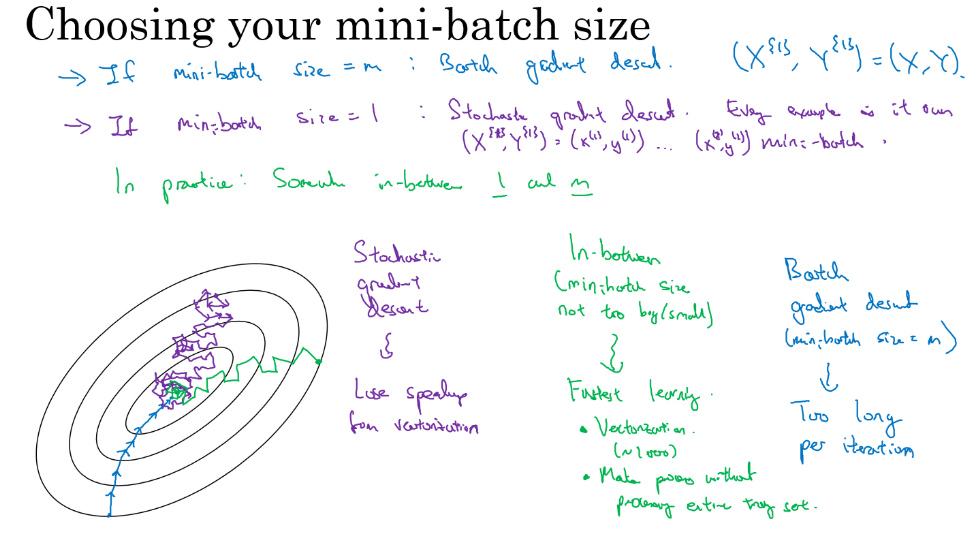 Choosing your mini-batch size
→ If mini-batch size = m : Batch gradient descent. (X^{1}, Y^{1}) = (X, Y).
→ If mini-batch size = 1 : Stochastic gradient descent. Every example is it own
(X^{1}, Y^{1}) = (x^(1), y^(1)) ... mini-batch.
In practice: Somewhere in-between 1 and m
Stochastic
gradient
descent
Lose speedup
from vectorization
In-between
(mini-batch size
not too big/small)
Fastest learning.
• Vectorization.
(~1000)
• Make progress without
processing entire training set.
Batch
gradient descent
(mini-batch size = m)
Too long
per iteration